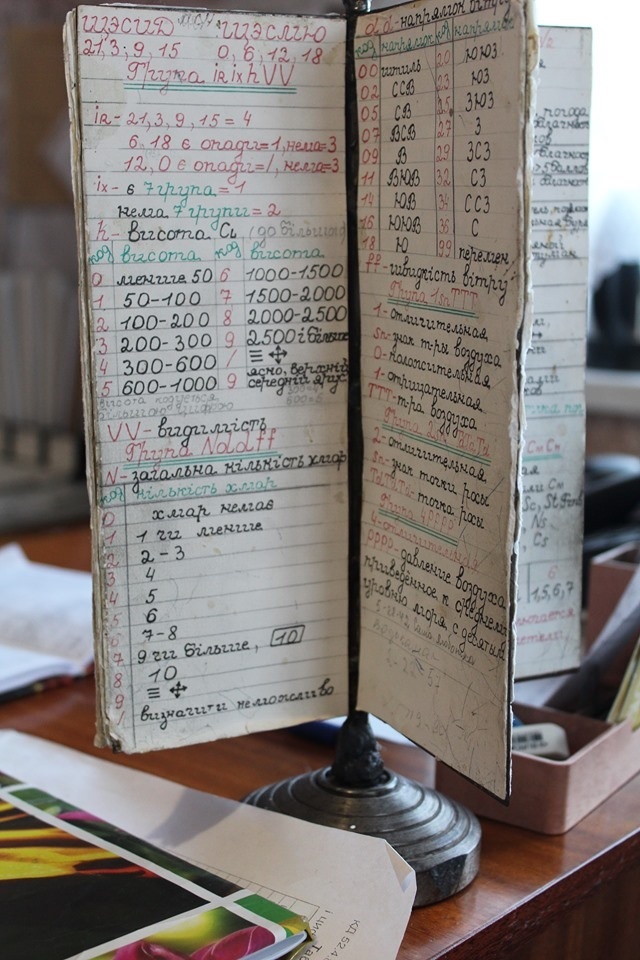 ЩЭСИД ЩЭСЛЮ
21,3,9,15 0,6,12,18
Група iRixhVV
iR-21,3,9,15=4
6,18 є опади=1,нема=3
12,0 є опади=1,нема=3
ix- є 7група=1
нема 7групи=2
h- висота CL (до більшого)
код висота код висота
0 менше 50 6 1000-1500
1 50-100 7 1500-2000
2 100-200 8 2000-2500
3 200-300 9 2500 і більше
4 300-600 /
5 600-1000 9 ясно, верхній середній ярус
висота кодується
більшою цифрою
VV- видимість
Група Nddff
N-загальна кількість хмар
код кількість хмар
0 хмар немає
1 1 чи менше
2 2-3
3 4
4 5
5 6
6 7-8
7 9 чи більше, 10
8 10
9
/ визначити неможливо
dd-напрямок вітру
код напрямок код напрямок
00 штиль 20 ЮЮЗ
02 ССВ 23 ЮЗ
05 СВ 25 ЗЮЗ
07 ВСВ 27 З
09 В 29 ЗСЗ
11 ВЮВ 32 СЗ
14 ЮВ 34 ССЗ
16 ЮЮВ 36 С
18 Ю 99 перемен
ff-швидкість вітру
Група 1snTTT
1-отличительная
sn-знак т-ры воздуха
0-положительная
1-отрицательная
TTT-т-ра воздуха
Група 2sn TdTdTd
2-отличительная
sn-знак точки росы
TdTdTd-точка росы
Група 4PPPP
4-отличительная
PPPP-давление воздуха
приведённое к среднему
уровню моря, с десятым
погода
Sc, St
Ns
Cs
6
1,5,6,7
КД 524